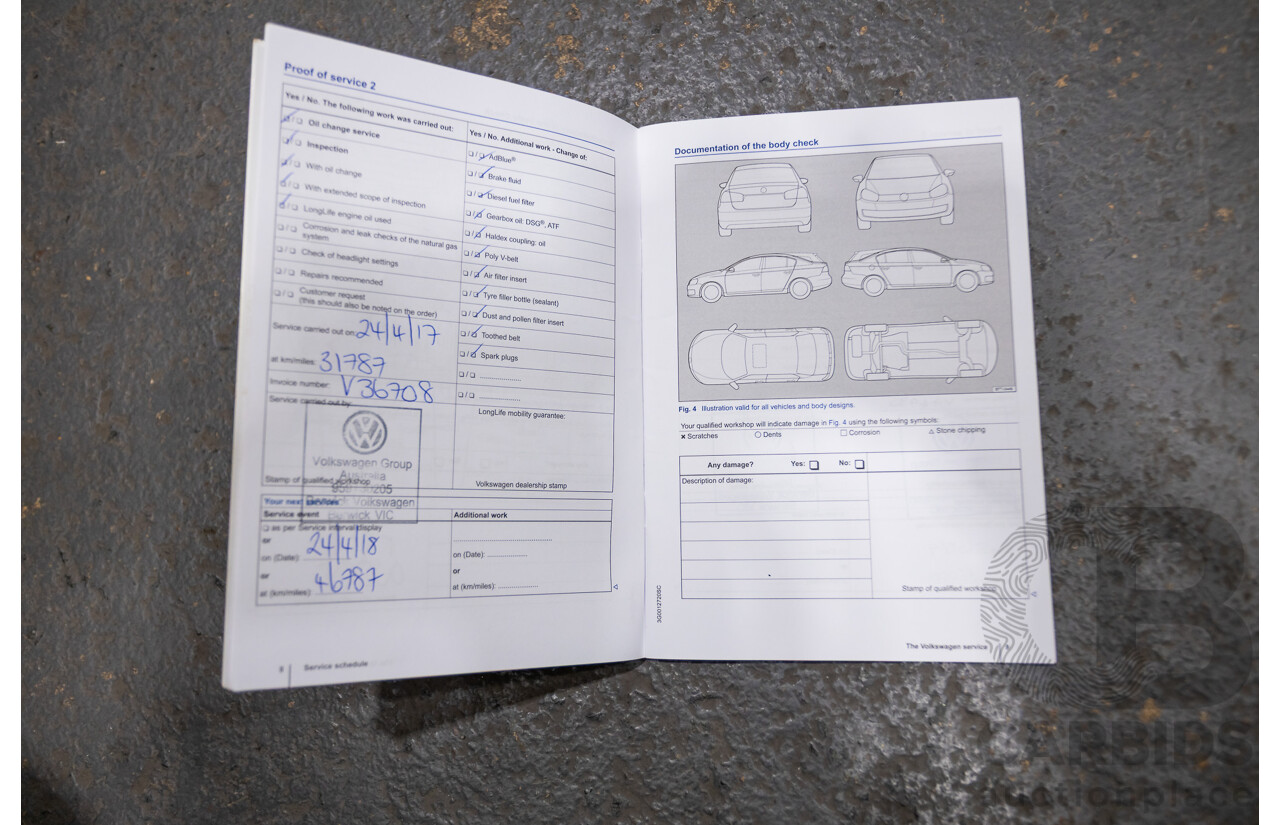 Proof of service 2
Yes / No. The following work was carried out:
❑ / ❑ Oil change service
❑ / ❑ Inspection
❑ / ❑ With oil change
❑ / ❑ With extended scope of inspection
❑ / ❑ LongLife engine oil used
❑ / ❑ Corrosion and leak checks of the natural gas
system
❑ / ❑ Check of headlight settings
❑ / ❑ Repairs recommended
❑ / ❑ Customer request
(this should also be noted on the order)
Service carried out on: 24/4/17
at km/miles: 31787
Invoice number: V36708
Service carried out by:
Volkswagen Group
Australia
Volkswagen
Berwick VIC
Stamp of qualified workshop
Yes / No. Additional work - Change of:
❑ / ❑ AdBlue®
❑ / ❑ Brake fluid
❑ / ❑ Diesel fuel filter
❑ / ❑ Gearbox oil: DSG®, ATF
❑ / ❑ Haldex coupling: oil
❑ / ❑ Poly V-belt
❑ / ❑ Air filter insert
❑ / ❑ Tyre filler bottle (sealant)
❑ / ❑ Dust and pollen filter insert
❑ / ❑ Toothed belt
❑ / ❑ Spark plugs
❑ / ❑ ....................
❑ / ❑ ....................
LongLife mobility guarantee:
Volkswagen dealership stamp
Your next services
Service event
❑ as per Service interval display
or
on (Date): 24/4/18
or
at (km/miles): 46787
Additional work
on (Date): ....................
or
at (km/miles): ....................
8 Service schedule
Documentation of the body check
Fig. 4 Illustration valid for all vehicles and body designs.
Your qualified workshop will indicate damage in Fig. 4 using the following symbols:
× Scratches ○ Dents □ Corrosion △ Stone chipping
Any damage? Yes: ❑ No: ❑
Description of damage:
Stamp of qualified workshop
3G0012720SC
The Volkswagen service
CARBIDS
auctionplace